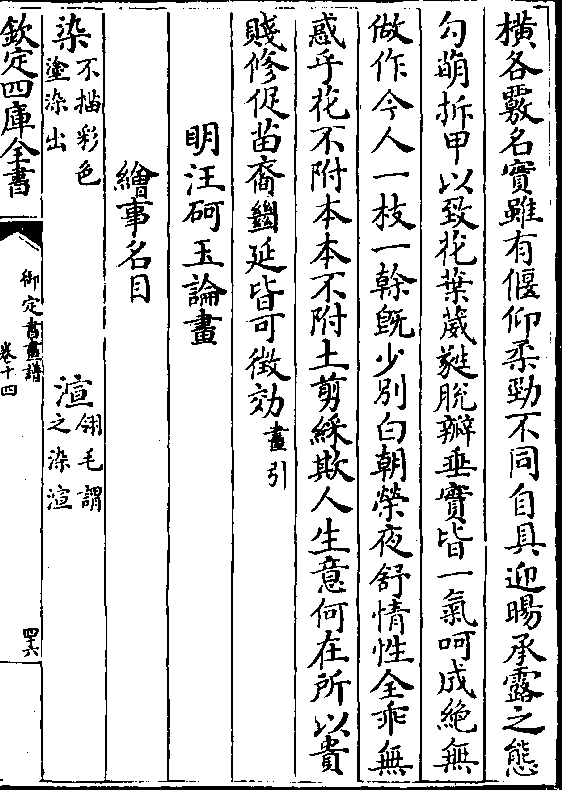 橫各覈名實雖有偃仰柔勁不同自具迎暘承露之態
勾萌拆甲以致花葉葳蕤脫瓣垂實皆一氣呵成絕無
做作今人一枝一榦旣少別白朝榮夜舒情性全乖無
惑乎花不附本本不附土剪綵欺人生意何在所以貴
賤修促苗裔緜延皆可徵効畫引
明汪砢玉論畫
繪事名目
染不描彩色塗染出 渲翎毛謂之染渲
欽定四庫全書 御定書畫譜 卷十四 四六